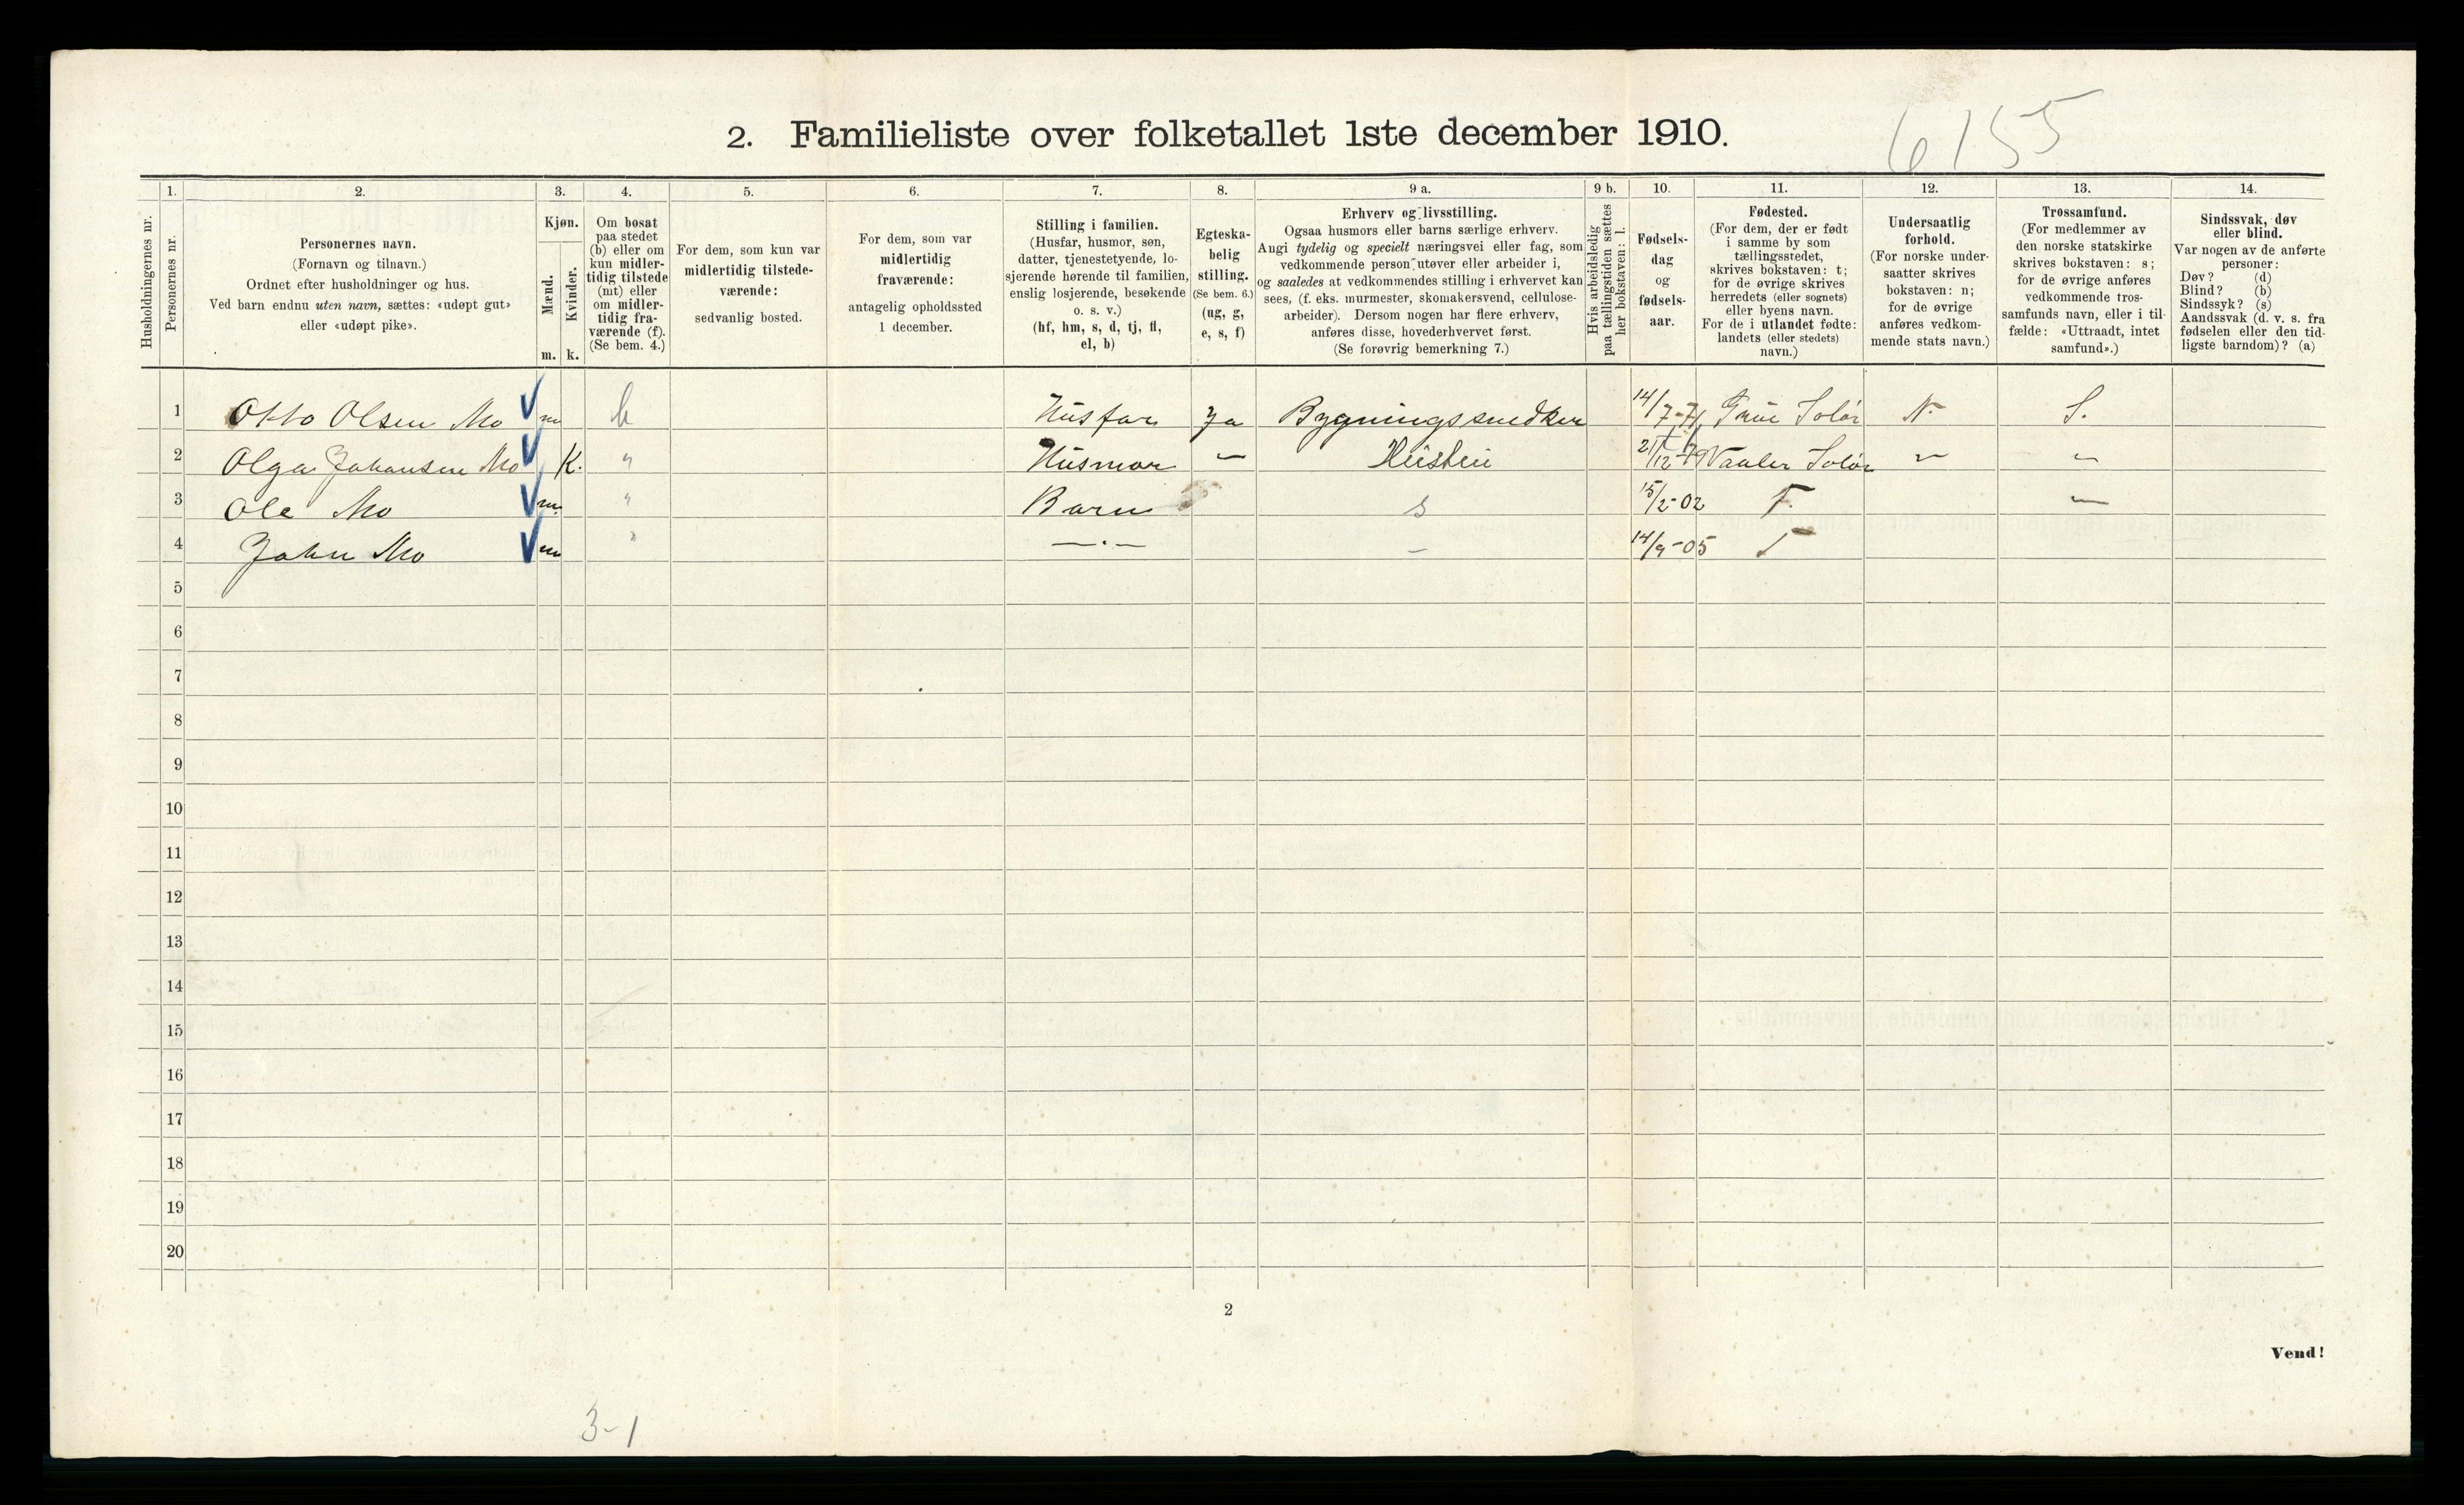 6155
2. Familieliste over folketallet 1ste december 1910.
1. 2. 3. 4. 5. 6. 7. 8. 9 a. 9 b. 10. 11. 12. 13. 14.
Husholdningernes nr.
Personernes nr.
Personernes navn.
(Fornavn og tilnavn.)
Ordnet efter husholdninger og hus.
Ved barn endnu uten navn, sættes: «udøpt gut»
eller «udøpt pike».
Kjøn.
Mænd.
Kvinder.
m. k.
Om bosat
paa stedet
(b) eller om
kun midler-
tidig tilstede
(mt) eller
om midler-
tidig fra-
værende (f).
(Se bem. 4.)
For dem, som kun var
midlertidig tilstede-
værende:
sedvanlig bosted.
For dem, som var
midlertidig
fraværende:
antagelig opholdssted
1 december.
Stilling i familien.
(Husfar, husmor, søn,
datter, tjenestetyende, lo-
sjerende hørende til familien,
enslig losjerende, besøkende
o. s. v.)
(hf, hm, s, d, tj, fl,
el, b)
Egteska-
belig
stilling.
(Se bem. 6.)
(ug, g,
e, s, f)
Erhverv og livsstilling.
Ogsaa husmors eller barns særlige erhverv.
Angi tydelig og specielt næringsvei eller fag, som
vedkommende person utøver eller arbeider i,
og saaledes at vedkommendes stilling i erhvervet kan
sees, (f. eks. murmester, skomakersvend, cellulose-
arbeider). Dersom nogen har flere erhverv,
anføres disse, hovederhvervet først.
(Se forøvrig bemerkning 7.)
Hvis arbeidsledig
paa tællingstiden sættes
her bokstaven: l.
Fødsels-
dag
og
fødsels-
aar.
Fødested.
(For dem, der er født
i samme by som
tællingsstedet,
skrives bokstaven: t;
for de øvrige skrives
herredets (eller sognets)
eller byens navn.
For de i utlandet fødte:
landets (eller stedets)
navn.)
Undersaatlig
forhold.
(For norske under-
saatter skrives
bokstaven: n;
for de øvrige
anføres vedkom-
mende stats navn.)
Trossamfund.
(For medlemmer av
den norske statskirke
skrives bokstaven: s;
for de øvrige anføres
vedkommende tros-
samfunds navn, eller i til-
fælde: «Uttraadt, intet
samfund».)
Sindssvak, døv
eller blind.
Var nogen av de anførte
personer:
Døv? (d)
Blind? (b)
Sindssyk? (s)
Aandssvak (d. v. s. fra
fødselen eller den tid-
ligste barndom)? (a)
1 Otto Olsen Mo m b Husfar Ja Bygningssnedker 14/7-71 Grue Solør N. S.
2 Olga Johansen Mo K. " Husmor — 21/12-79 Vaaler Solør " "
3 Ole Mo m. " Barn s 15/2-02 T. —
4 John Mo m " —.— — 14/9-05 T
5
6
7
8
9
10
11
12
13
14
15
16
17
18
19
20
2
Vend!
3-1